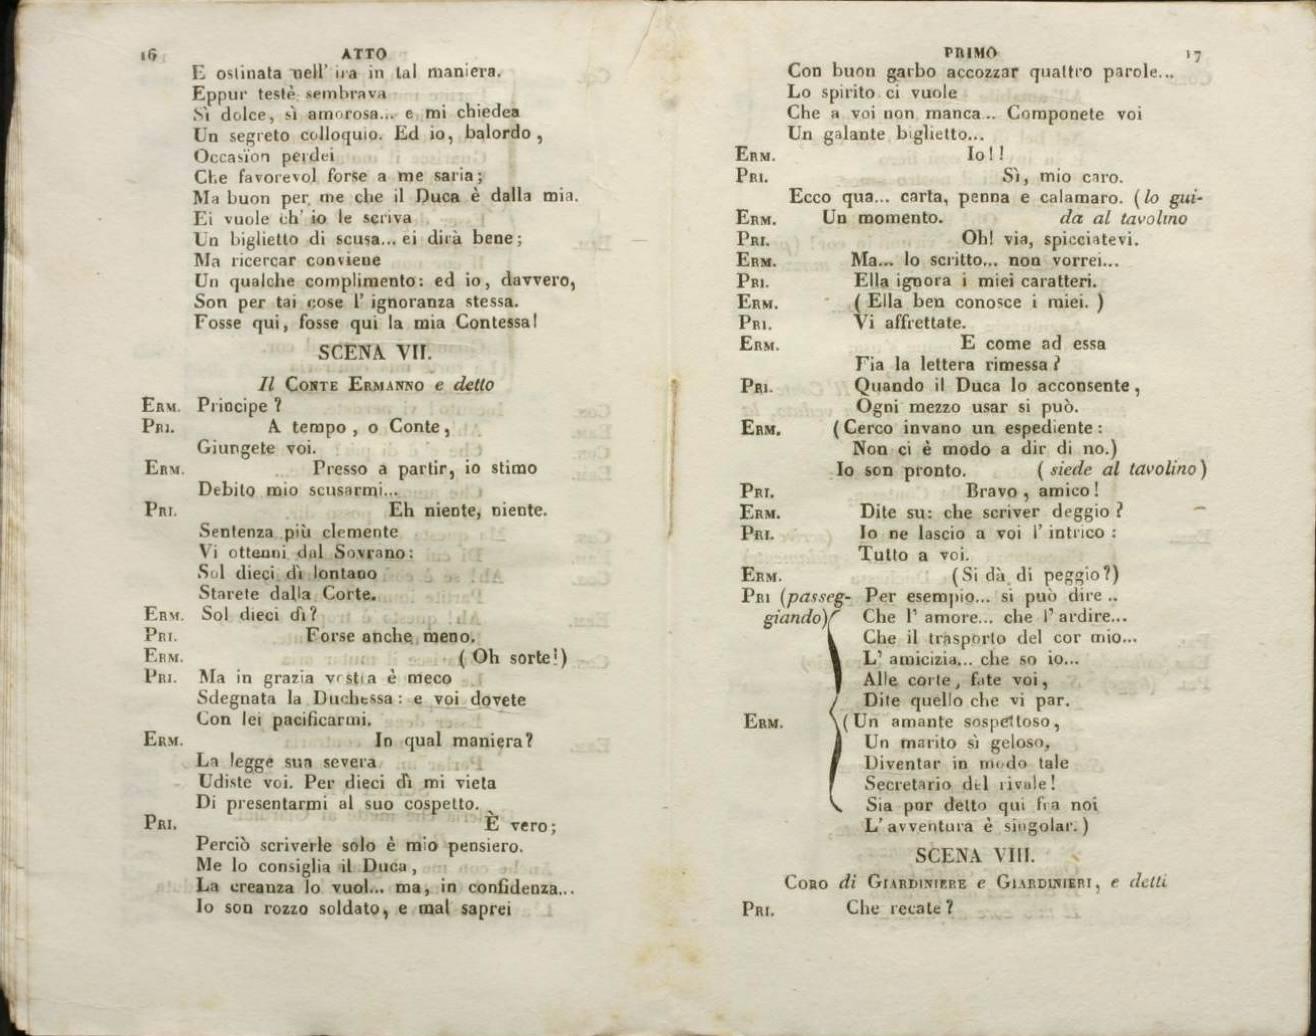 16 ATTO
E ostinata nell' ira in tal maniera.
Eppur testè sembrava
Sì dolce, sì amorosa... e mi chiedea
Un segreto colloquio. Ed io, balordo,
Occasïon perdei
Che favorevol forse a me saria;
Ma buon per me che il Duca è dalla mia.
Ei vuole ch' io le scriva
Un biglietto di scusa... ei dirà bene;
Ma ricercar conviene
Un qualche complimento: ed io, davvero,
Son per tai cose l' ignoranza stessa.
Fosse qui, fosse qui la mia Contessa!
SCENA VII.
Il CONTE ERMANNO e detto
ERM. Principe?
PRI. A tempo, o Conte,
Giungete voi.
ERM. Presso a partir, io stimo
Debito mio scusarmi...
PRI. Eh niente, niente.
Sentenza più clemente
Vi ottenni dal Sovrano:
Sol dieci dì lontano
Starete dalla Corte.
ERM. Sol dieci dì?
PRI. Forse anche meno.
ERM. (Oh sorte!)
PRI. Ma in grazia vostra è meco
Sdegnata la Duchessa: e voi dovete
Con lei pacificarmi.
ERM. In qual maniera?
La legge sua severa
Udiste voi. Per dieci dì mi vieta
Di presentarmi al suo cospetto.
PRI. È vero;
Perciò scriverle solo è mio pensiero.
Me lo consiglia il Duca,
La creanza lo vuol... ma, in confidenza...
Io son rozzo soldato, e mal saprei
PRIMO 17
Con buon garbo accozzar quattro parole...
Lo spirito ci vuole
Che a voi non manca... Componete voi
Un galante biglietto...
ERM. Io!!
PRI. Sì, mio caro.
Ecco qua... carta, penna e calamaro. (lo gui-
ERM. Un momento. da al tavolino
PRI. Oh! via, spicciatevi.
ERM. Ma... lo scritto... non vorrei...
PRI. Ella ignora i miei caratteri.
ERM. (Ella ben conosce i miei.)
PRI. Vi affrettate.
ERM. E come ad essa
Fia la lettera rimessa?
PRI. Quando il Duca lo acconsente,
Ogni mezzo usar si può.
ERM. (Cerco invano un espediente:
Non ci è modo a dir di no.)
Io son pronto. (siede al tavolino)
PRI. Bravo, amico!
ERM. Dite su: che scriver deggio?
PRI. Io ne lascio a voi l' intrico:
Tutto a voi.
ERM. (Si dà di peggio?)
PRI (passeg- Per esempio... si può dire..
giando) Che l' amore... che l' ardire...
Che il trasporto del cor mio...
L' amicizia... che so io...
Alle corte, fate voi,
Dite quello che vi par.
ERM. (Un amante sospettoso,
Un marito sì geloso,
Diventar in modo tale
Secretario del rivale!
Sia por detto qui fra noi
L' avventura è singolar.)
SCENA VIII.
CORO di GIARDINIERE e GIARDINIERI, e detti
PRI. Che recate?